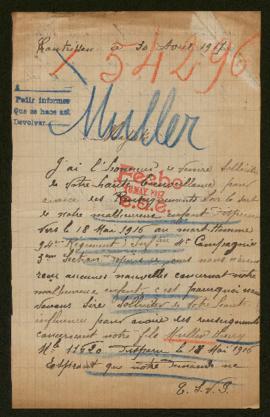 le 30 Avril 1917
54296
Pedir informes
Que se hace así
Devolver
Muller
J'ai l'honneur de venir solliciter
de votre haute bienveillance pour
avoir des Renseignements sur le sort
de notre malheureux enfant disparu
vers le 18 Mai 1916 au mort Homme
94e Régiment Inf 4e Compagnie
3em Section depuis nous
aucunes nouvelles concernant notre
malheureux enfant c'est pourquoi nous
venons Sire Solliciter de votre haute
influence pour avoir des renseignements
concernant notre fils Muller Henry
Mle 11620 Disparu le 18 Mai 1916
Espérant que notre demande ne
T. S. V. P.
Fecho
MAY. 1917